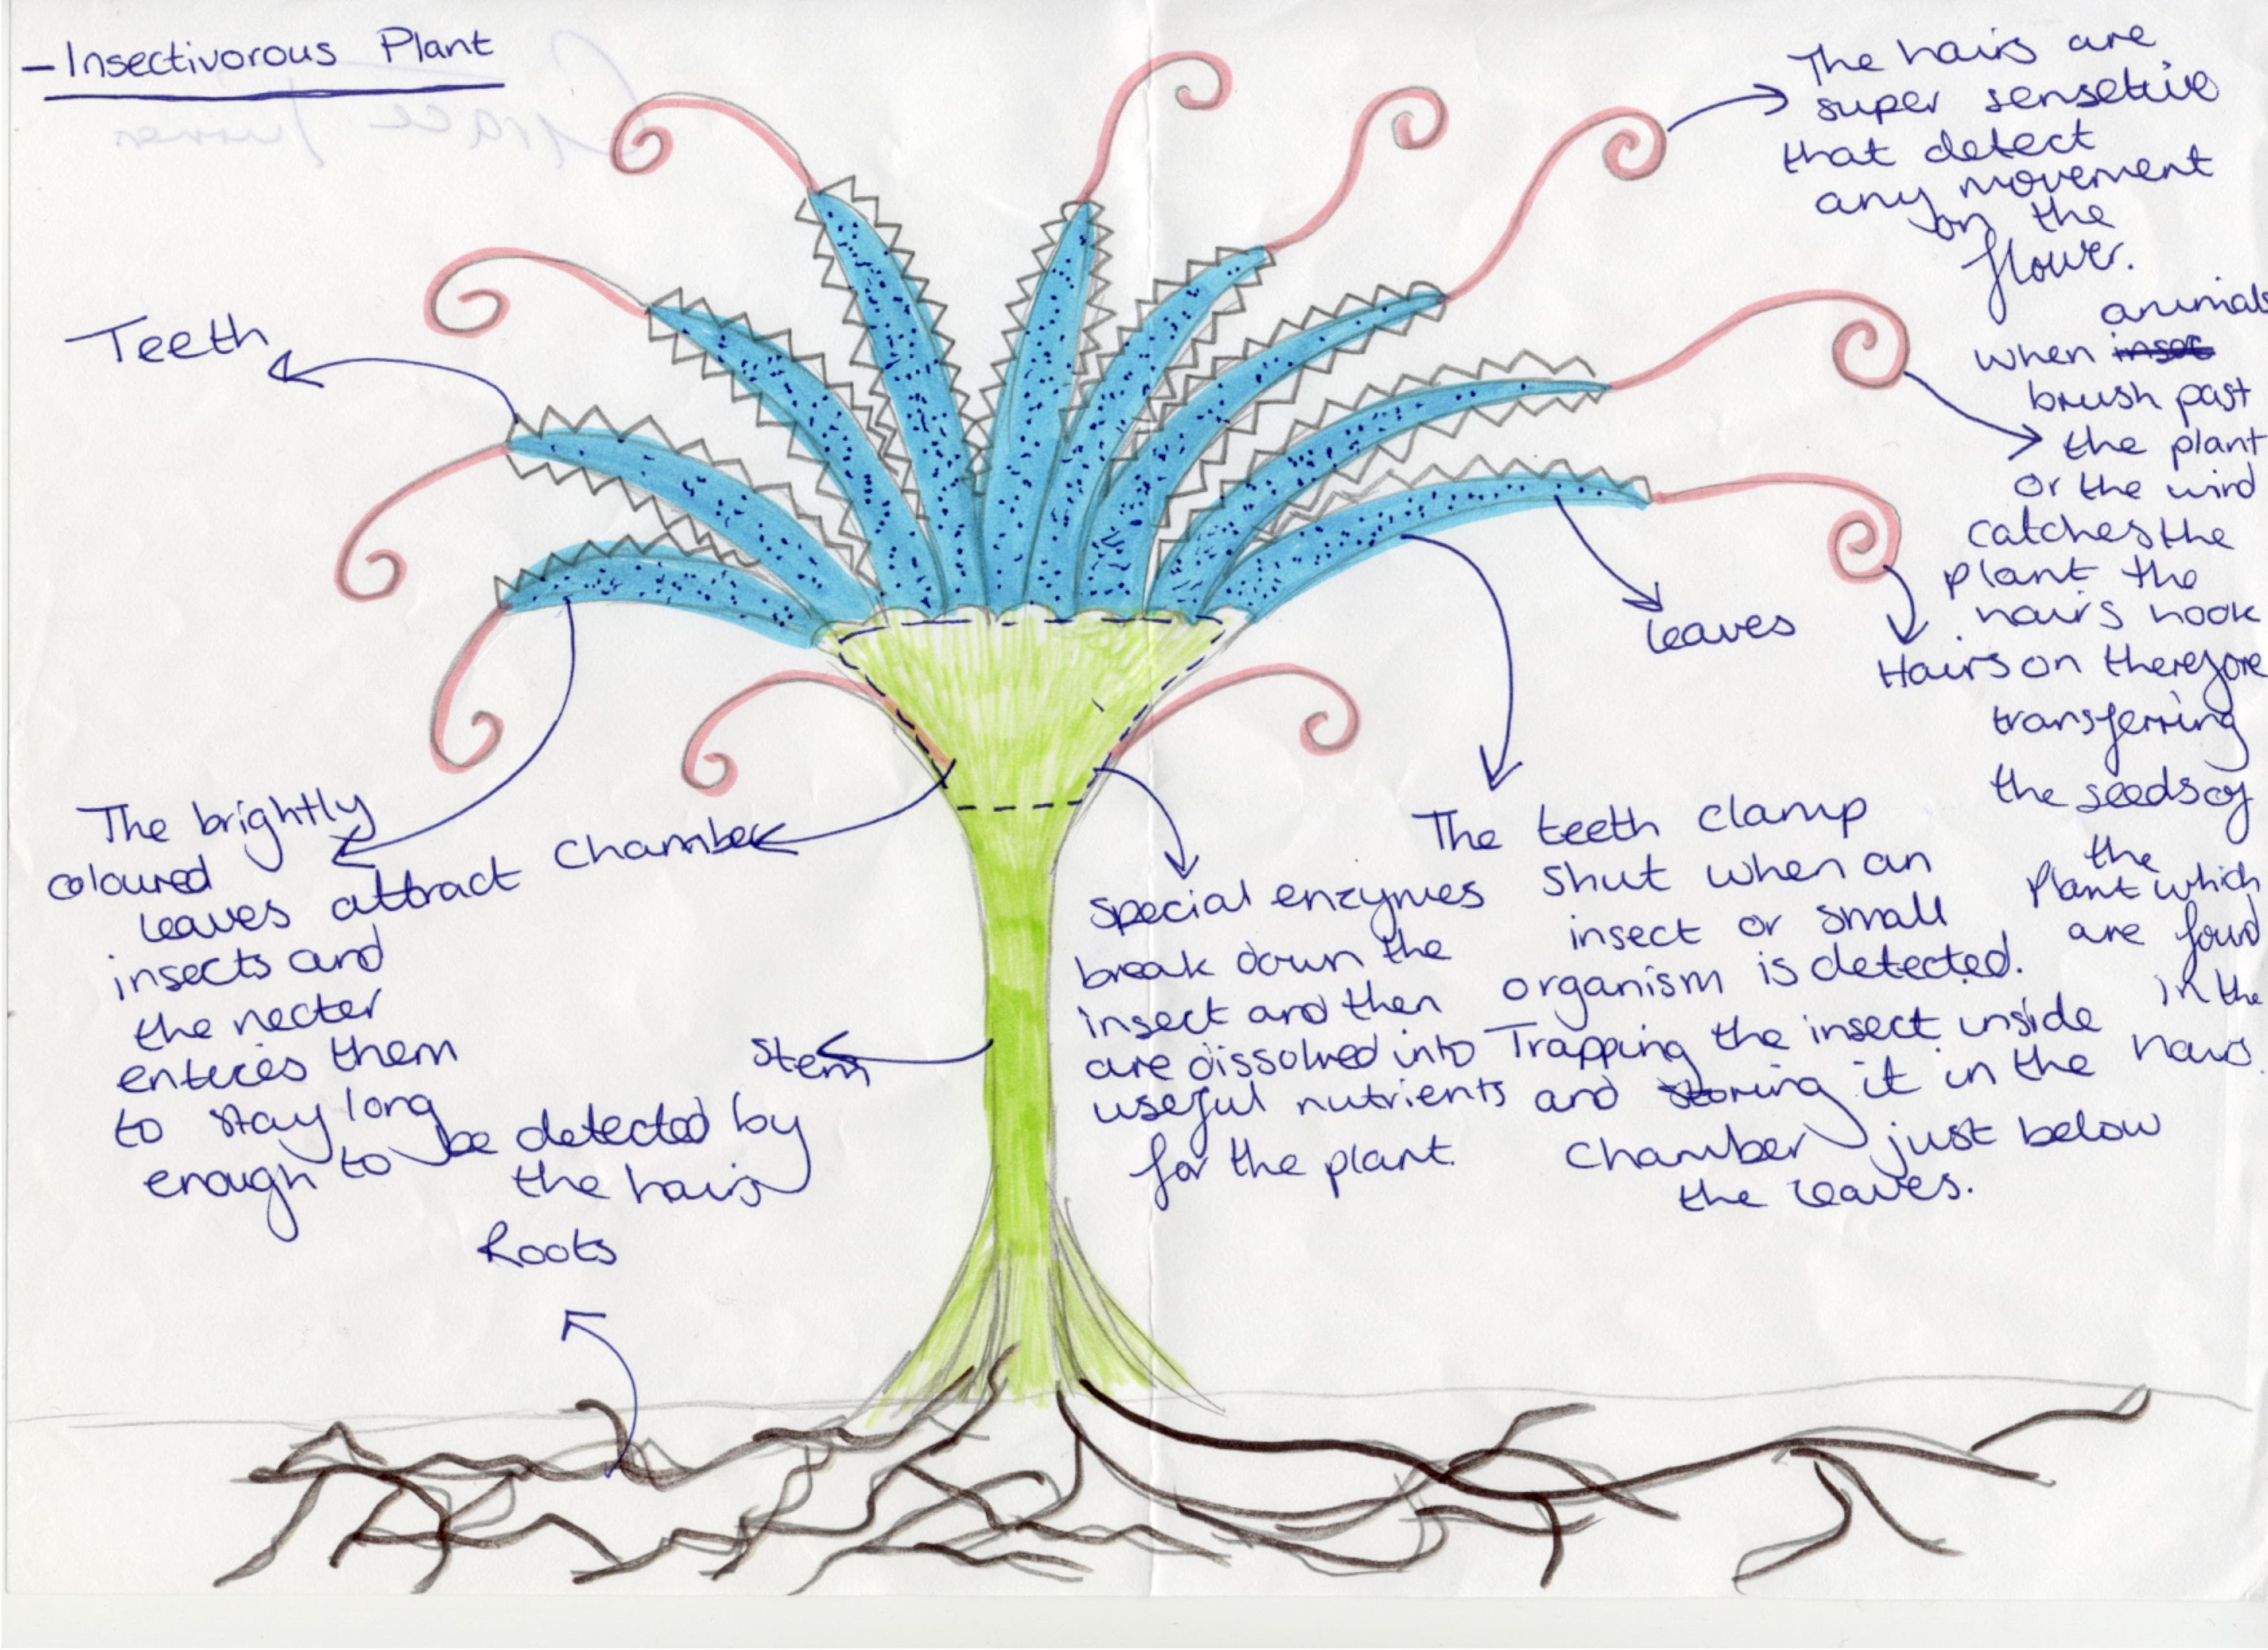 - Insectivorous Plant
Grace Turner
The hairs are
super sensetive
that detect
any movement
on the
flower.
Teeth
animals
when
brush past
the plant
or the wind
catches the
plant the
hairs hook
on therefore
transferring
the seeds of
the
plant which
are found
in the
hairs.
Hairs
leaves
The brightly
coloured
leaves attract
insects and
the necter
entices them
to stay long
enough to be detected by
the hairs
Chamber
Special enzymes
break down the
insect and then
are dissolved into
useful nutrients
for the plant.
The teeth clamp
shut when an
insect or small
organism is detected.
Trapping the insect inside
and storing it in the
chamber just below
the leaves.
Stem
Roots